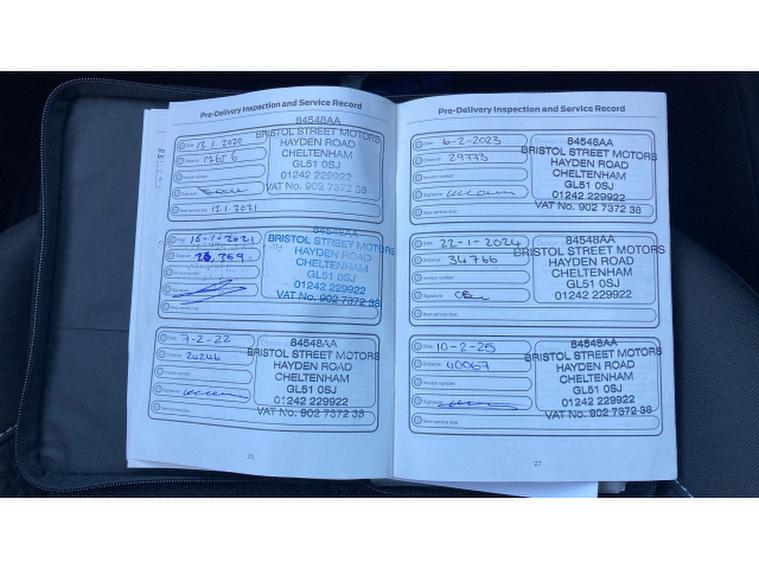 Pre-Delivery Inspection and Service Record
84548AA
BRISTOL STREET MOTORS
HAYDEN ROAD
CHELTENHAM
GL51 0SJ
01242 229922
VAT No. 902 7372 38
Date 13.1.2020
Distance
Invoice number
Signature
Next service due 13.1.2021
84548AA
BRISTOL STREET MOTORS
HAYDEN ROAD
CHELTENHAM
GL51 0SJ
01242 229922
VAT No. 902 7372 38
Date
Distance
Invoice number
Signature
Next service due
84548AA
BRISTOL STREET MOTORS
HAYDEN ROAD
CHELTENHAM
GL51 0SJ
01242 229922
VAT No. 902 7372 38
Date 7-2-22
Distance 24246
Invoice number
Signature
Next service due
26
Pre-Delivery Inspection and Service Record
84548AA
BRISTOL STREET MOTORS
HAYDEN ROAD
CHELTENHAM
GL51 0SJ
01242 229922
VAT No. 902 7372 38
Date 6-2-2023
Distance 29773
Invoice number
Signature
Next service due
84548AA
BRISTOL STREET MOTORS
HAYDEN ROAD
CHELTENHAM
GL51 0SJ
01242 229922
Date 22-1-2024
Distance 34766
Invoice number
Signature
Next service due
84548AA
BRISTOL STREET MOTORS
HAYDEN ROAD
CHELTENHAM
GL51 0SJ
01242 229922
VAT No. 902 7372 38
Date 10-2-25
Distance 40067
Invoice number
Signature
Next service due
27